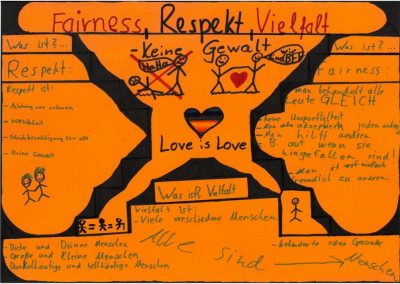 Fairness, Respekt, Vielfalt
-Keine Gewalt
HaHa
Was ist?...
Respekt:
Respekt ist:
- Achtung vor anderen
- Höflichkeit
- Gleichberechtigung für alle
- Keine Gewalt
Was ist?...
Fairness:
- man behandelt alle
Leute GLEICH
- keine Unparteilheit
- Man akzeptiert jeden anderen
- Man hilft andren
z. B. auf wenn sie
hingefallen sind!
- Man ist einfach
freundlich zu andren.
Love is Love
Was ist Vielfalt
Vielfalt ist:
- Viele verschiedne Menschen
- Dicke und Dünne Menschen
- Große und Kleine Menschen
- Dunkelhäutige und hellhäutige Menschen
- behinderte oder Gesunde
Alle sind → Menschen